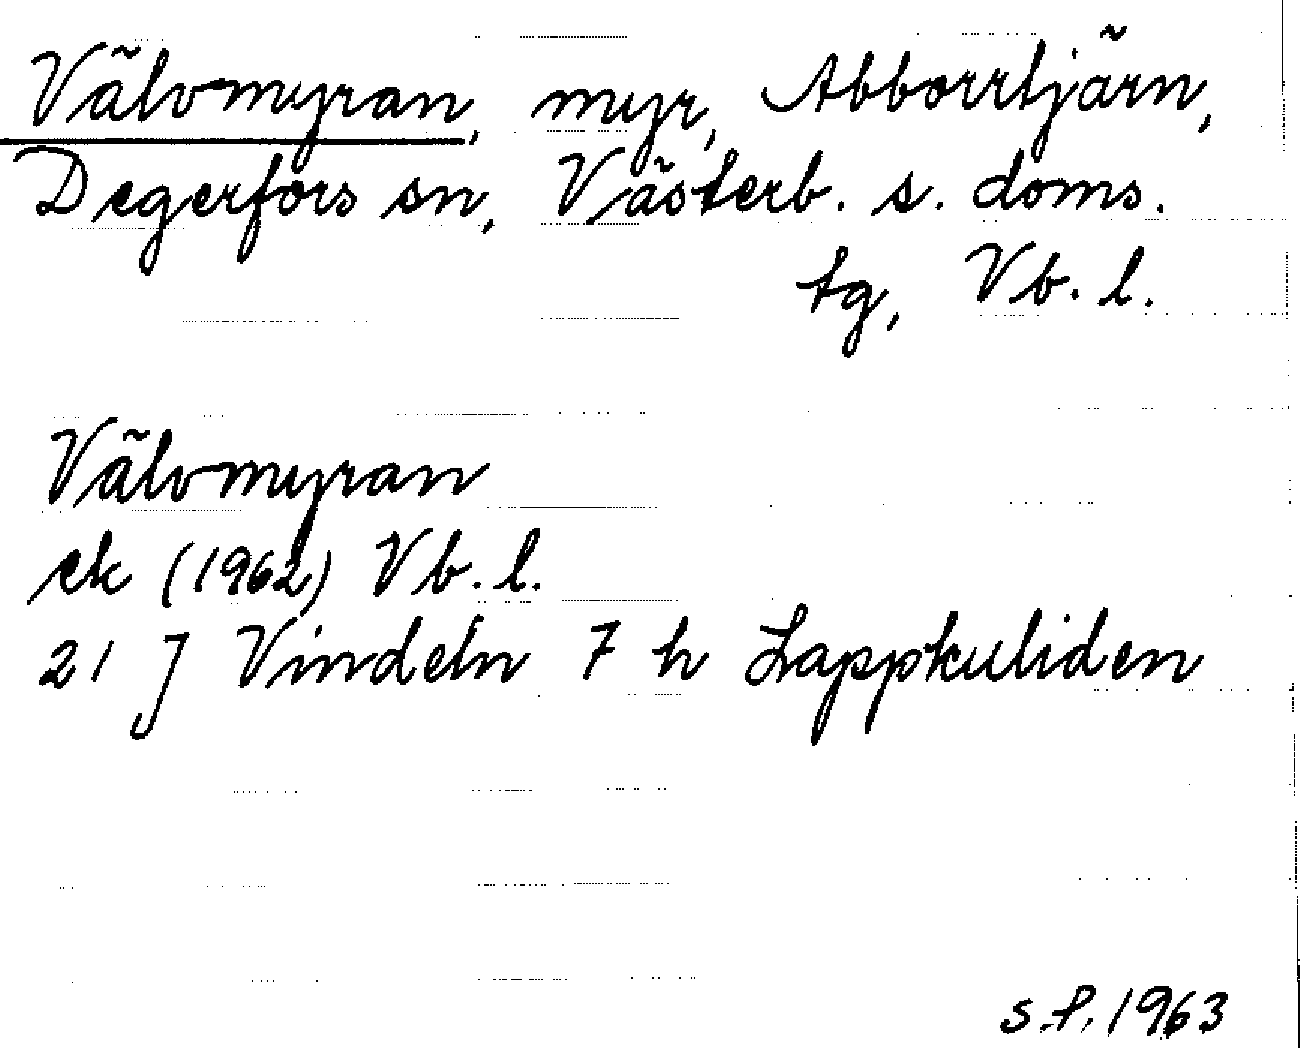 Välvmyran, myr, Abborrtjärn,
Degerfors sn, Västerb. s. doms.
tg, Vb. l.
Välvmyran
ek (1962) Vb. l.
21 J Vindeln 7 h Lappkuliden
s.f. 1963